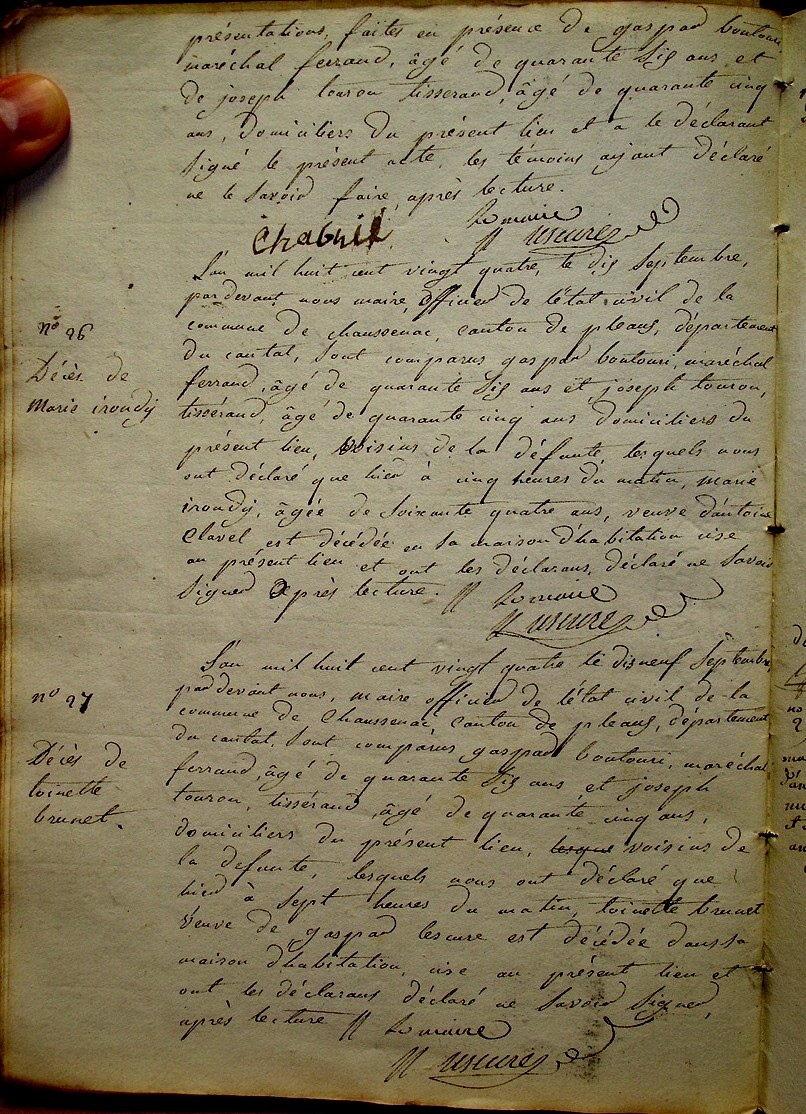 présentations, faites en présence de gaspar boutouri,
maréchal ferrand, âgé de quarante six ans et
de joseph touron tisserand, âgé de quarante cinq
ans, domiciliers du présent lieu et a le déclarant
signé le présent acte, les témoins ayant déclaré
ne le savoir faire, après lecture.
Le maire
L'an mil huit cent vingt quatre, le dix septembre,
pardevant nous maire, officier de l'état civil de la
nº 26
commune de chaussenac, canton de pleaux, département
du cantal, sont comparus gaspar boutouri, maréchal
Décès de
ferrand, âgé de quarante six ans et joseph touron,
marie irondy
tissérand, âgé de quarante cinq ans domiciliers du
présent lieu, voisins de la défunte, lesquels nous
ont déclaré que hier à cinq heures du matin, marie
irondy, âgée de soixante quatre ans, veuve d'antoine
Clavel est décédée en sa maison d'habitation cise
au présent lieu et ont les déclarans, déclaré ne savoir
signer après lecture. Le maire
L'an mil huit cent vingt quatre le dix neuf septembre
nº 27
pardevant nous, maire officier de l'état civil de la
commune de Chaussenac, canton de pleaux, département
du cantal, sont comparus gaspar boutouri, maréchal
Décès de
ferrand, âgé de quarante six ans et joseph
toinette
touron, tissérand, âgé de quarante cinq ans,
brunet.
domiciliers du présent lieu, lesque voisins de
la defunte, lesquels nous ont déclaré que
hier à sept heures du matin, toinette brunet
veuve de gaspar lescure est décédée dans sa
maison d'habitation, cise au présent lieu et
ont les déclarans déclaré ne savoir signer,
après lecture Le maire